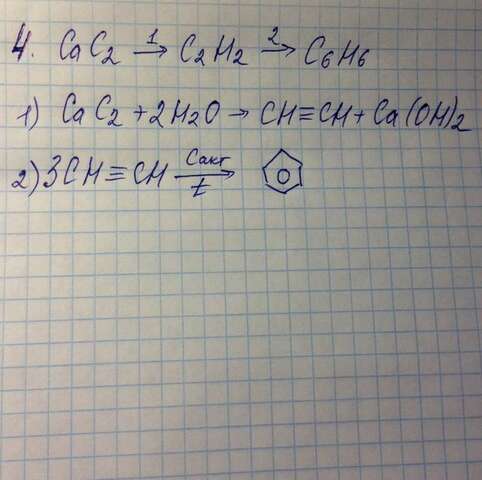 4. CaC2 1→ C2H2 2→ C6H6
1) CaC2 + 2H2O → CH≡CH + Ca(OH)2
2) 3CH≡CH Cакт→t